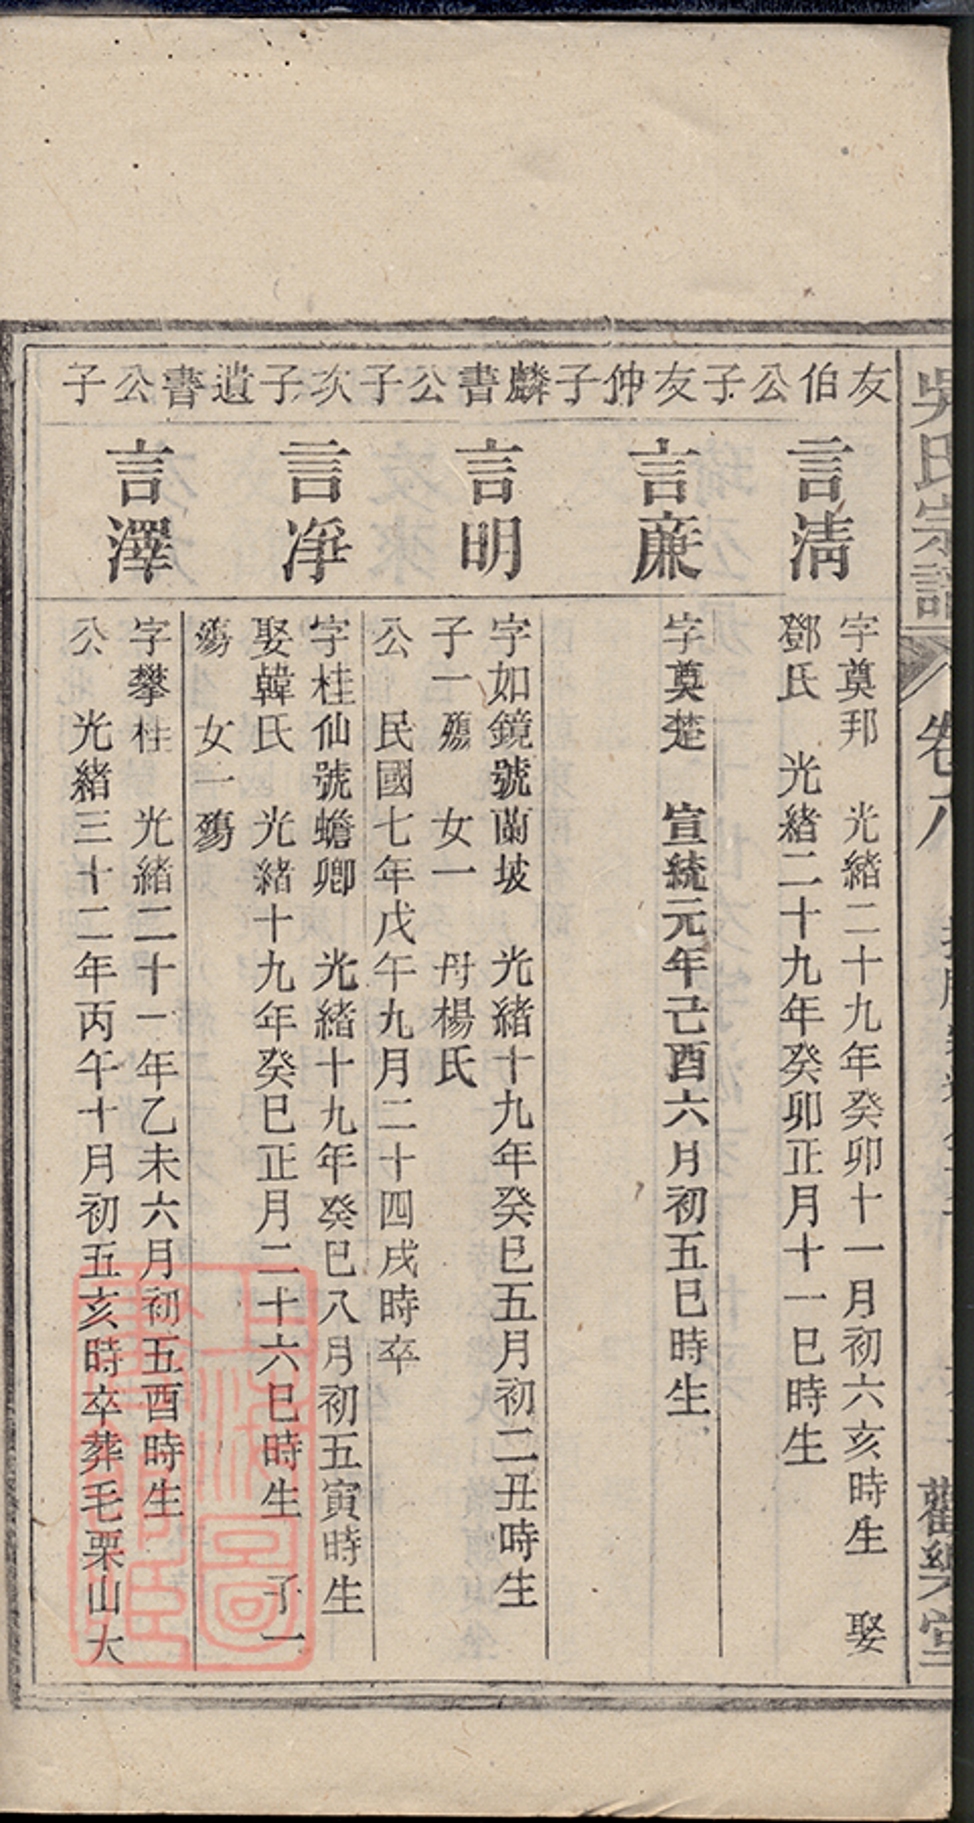 吳氏宗譜
卷八
觀樂堂
友伯公子友仲子麟書公子次子遺書公子
言清
字奠邦 光緒二十九年癸卯十一月初六亥時生 娶
鄧氏 光緒二十九年癸卯正月十一巳時生
言廉
字奠楚 宣統元年己酉六月初五巳時生
言明
字如鏡號蘭坡 光緒十九年癸巳五月初二丑時生
子一殤 女一 丹楊氏
公 民國七年戊午九月二十四戌時卒
言淨
字桂仙號蟾卿 光緒十九年癸巳八月初五寅時生
娶韓氏 光緒十九年癸巳正月二十六巳時生 子一
殤 女一殤
言澤
字攀桂 光緒二十一年乙未六月初五酉時生
公 光緒三十二年丙午十月初五亥時卒葬毛栗山大
上海圖書館藏